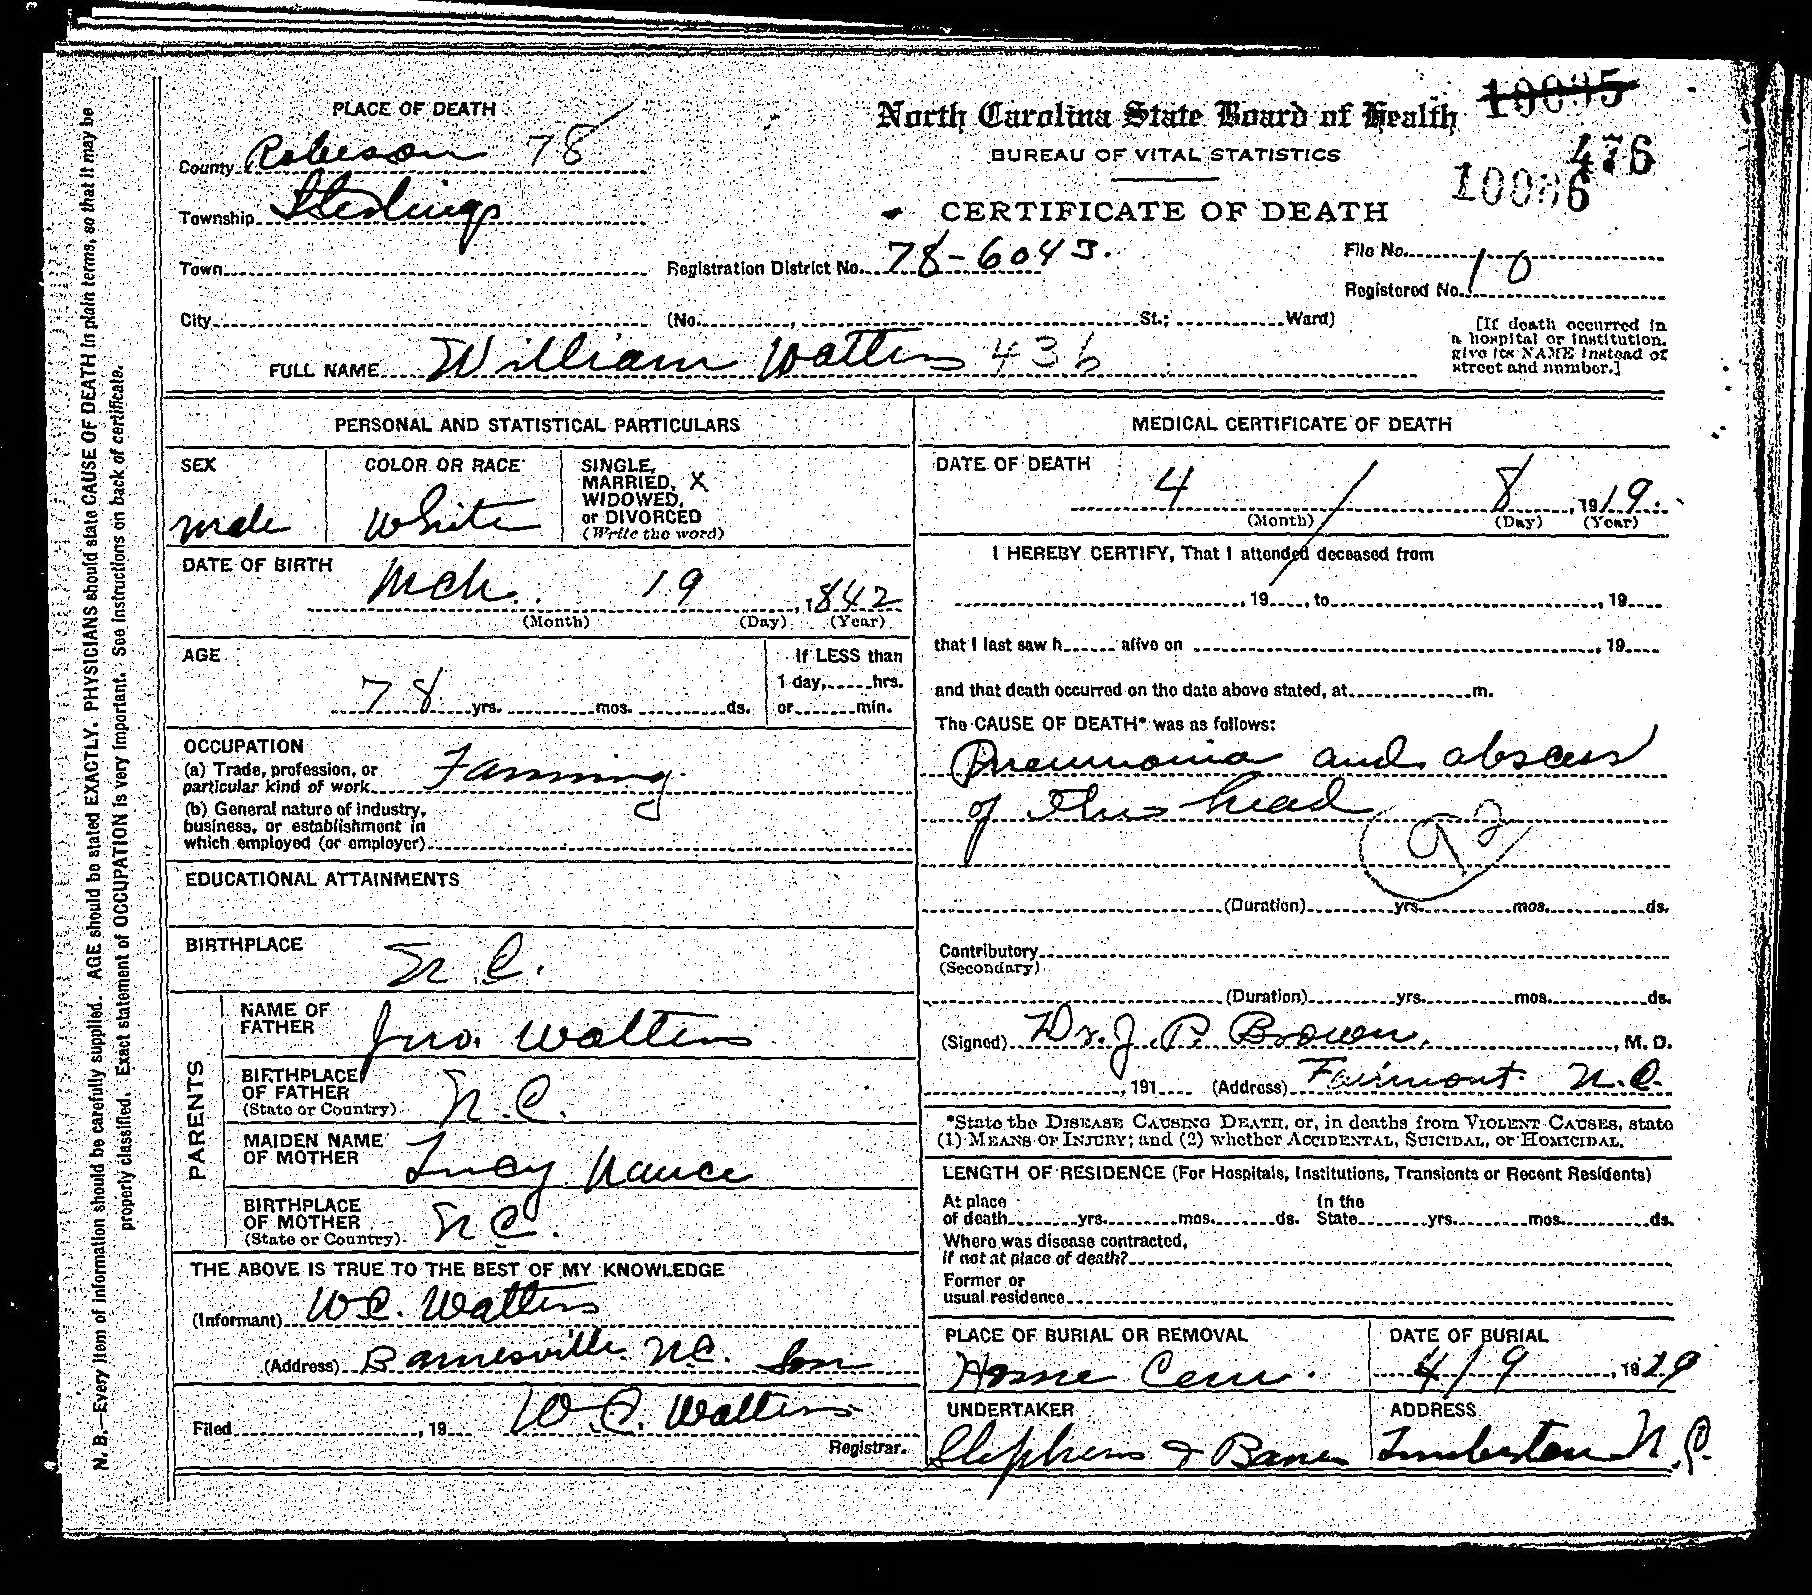 N. B.—Every item of information should be carefully supplied. AGE should be stated EXACTLY. PHYSICIANS should state CAUSE OF DEATH in plain terms, so that it may be
properly classified. Exact statement of OCCUPATION is very important. See instructions on back of certificate.
PLACE OF DEATH
County Robeson 78
Township Sterlings
Town
City
North Carolina State Board of Health
BUREAU OF VITAL STATISTICS
CERTIFICATE OF DEATH
476
Registration District No. 78-6043.
File No.
Registered No. 10
(No. , St.; Ward)
[If death occurred in
a hospital or institution.
give its NAME instead of
street and number.]
FULL NAME William Watters 436
PERSONAL AND STATISTICAL PARTICULARS
SEX
male
COLOR OR RACE
White
SINGLE,
MARRIED, X
WIDOWED,
or DIVORCED
(Write the word)
DATE OF BIRTH
Mch. 19, 1842
(Month) (Day) (Year)
AGE
78 yrs. mos. ds.
If LESS than
1 day, hrs.
or min.
OCCUPATION
(a) Trade, profession, or
particular kind of work Farming
(b) General nature of industry,
business, or establishment in
which employed (or employer)
EDUCATIONAL ATTAINMENTS
BIRTHPLACE
N.C.
PARENTS
NAME OF
FATHER Jno. Watters
BIRTHPLACE
OF FATHER
(State or Country) N.C.
MAIDEN NAME
OF MOTHER Lucy Nance
BIRTHPLACE
OF MOTHER
(State or Country) N.C.
THE ABOVE IS TRUE TO THE BEST OF MY KNOWLEDGE
(Informant) W.C. Watters
(Address) Barnesville N.C. Son
Filed , 19 W.C. Watters
Registrar.
MEDICAL CERTIFICATE OF DEATH
DATE OF DEATH
4 / 8, 1919.
(Month) (Day) (Year)
I HEREBY CERTIFY, That I attended deceased from
, 19 , to , 19
that I last saw h alive on , 19
and that death occurred on the date above stated, at m.
The CAUSE OF DEATH* was as follows:
Pneumonia and abscess
of the head
92
(Duration) yrs. mos. ds.
Contributory
(Secondary)
(Duration) yrs. mos. ds.
(Signed) Dr. J. P. Brown, M. D.
, 191 (Address) Fairmont N.C.
*State the DISEASE CAUSING DEATH, or, in deaths from VIOLENT CAUSES, state
(1) MEANS OF INJURY; and (2) whether ACCIDENTAL, SUICIDAL, or HOMICIDAL.
LENGTH OF RESIDENCE (For Hospitals, Institutions, Transients or Recent Residents)
At place
of death yrs. mos. ds.
In the
State yrs. mos. ds.
Where was disease contracted,
if not at place of death?
Former or
usual residence
PLACE OF BURIAL OR REMOVAL
Home Cem.
DATE OF BURIAL
4/9, 19
UNDERTAKER
Stephens & Barnes
ADDRESS
Lumberton N.C.